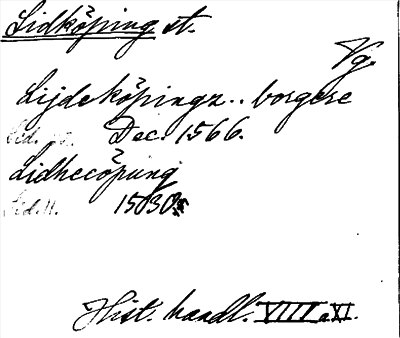 Lidköping st.
Vg.
Lijdeköpingz.. borgere
Sid. Dec. 1566.
Lidhecöpung
Sid. 11. 1530
Hist. handl. VIII a XI.